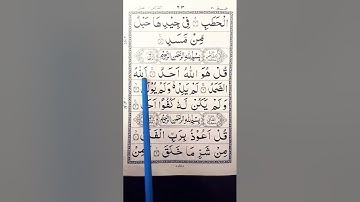 ٦٣
الْحَطَبِ ۝ فِيْ جِيْدِهَا حَبْلٌ
مِّنْ مَّسَدٍ ۝
بِسْمِ اللّٰهِ الرَّحْمٰنِ الرَّحِيْمِ
قُلْ هُوَ اللّٰهُ اَحَدٌ ۝ اَللّٰهُ
الصَّمَدُ ۝ لَمْ يَلِدْ وَلَمْ يُوْلَدْ
وَلَمْ يَكُنْ لَّهٗ كُفُوًا اَحَدٌ
بِسْمِ اللّٰهِ الرَّحْمٰنِ الرَّحِيْمِ
قُلْ اَعُوْذُ بِرَبِّ الْفَلَقِ
مِنْ شَرِّ مَا خَلَقَ ۝ وَمِنْ